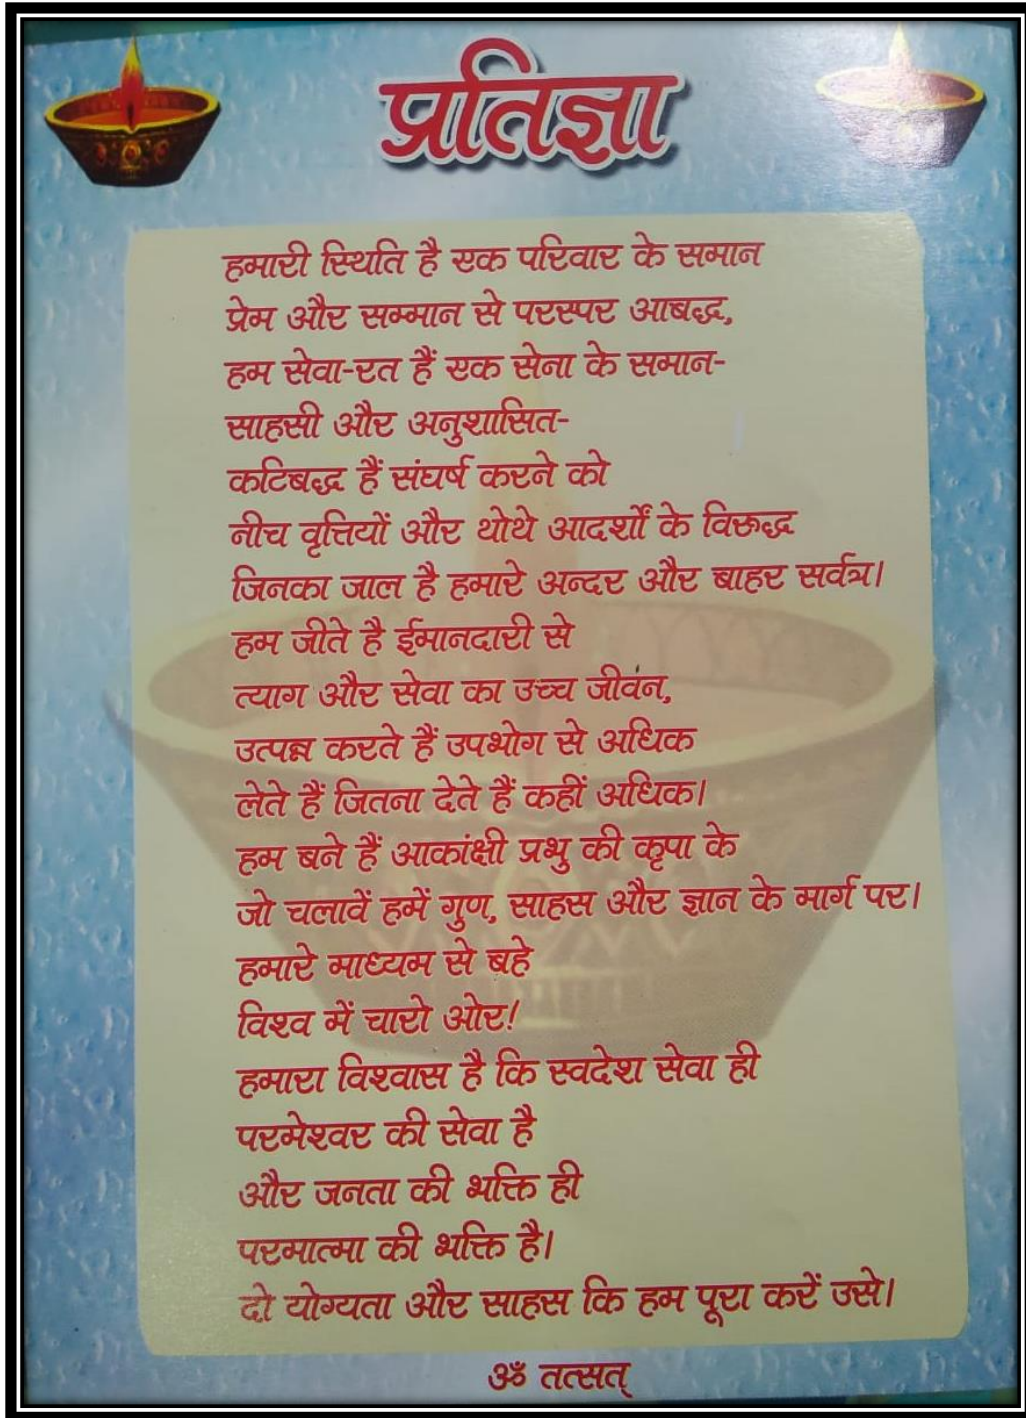 प्रतिज्ञा
हमारी स्थिति है एक परिवार के समान
प्रेम और सम्मान से परस्पर आबद्ध,
हम सेवा-रत हैं एक सेना के समान-
साहसी और अनुशासित-
कटिबद्ध हैं संघर्ष करने को
नीच वृत्तियों और थोथे आदर्शों के विरूद्ध
जिनका जाल है हमारे अन्दर और बाहर सर्वत्र।
हम जीते है ईमानदारी से
त्याग और सेवा का उच्च जीवन,
उत्पन्न करते हैं उपभोग से अधिक
लेते हैं जितना देते हैं कहीं अधिक।
हम बने हैं आकांक्षी प्रभु की कृपा के
जो चलावें हमें गुण, साहस और ज्ञान के मार्ग पर।
हमारे माध्यम से बहे
विश्व में चारो ओर!
हमारा विश्वास है कि स्वदेश सेवा ही
परमेश्वर की सेवा है
और जनता की भक्ति ही
परमात्मा की भक्ति है।
दो योग्यता और साहस कि हम पूरा करें उसे।
ॐ तत्सत्